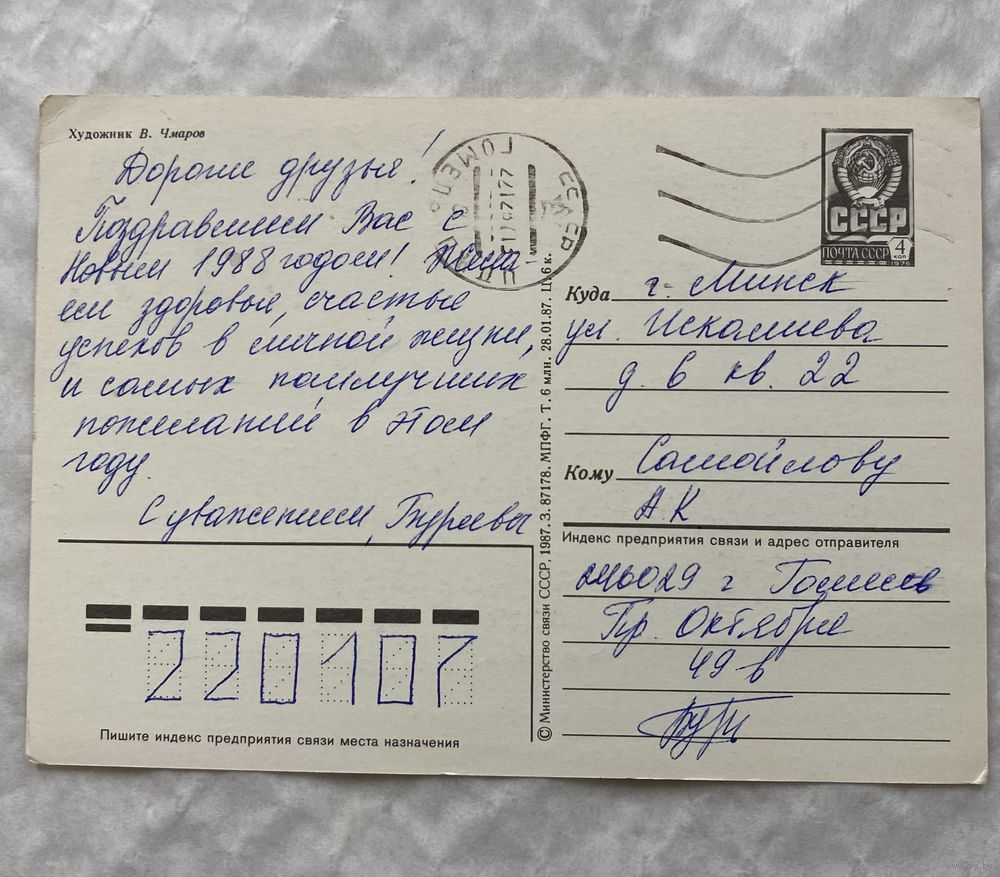 Художник В. Чмаров
Дорогие друзья!
Поздравляем Вас с
Новым 1988 годом! Жела-
ем здоровья, счастья
успехов в личной жизни,
и самых наилучших
пожеланий в этом
году.
С уважением,
СССР
ПОЧТА СССР
4
КОП
1976
ГОМЕЛЬ
СССР
Куда г. Минск
ул.
д. 6 кв. 22
Кому Самойлову
А.К
Индекс предприятия связи и адрес отправителя
246029 г Гомель
Пр. Октября
49 в
220107
Пишите индекс предприятия связи места назначения
© Министерство связи СССР, 1987. З. 87178. МПФГ. Т. 6 млн. 28.01.87. Ц. 6 к.